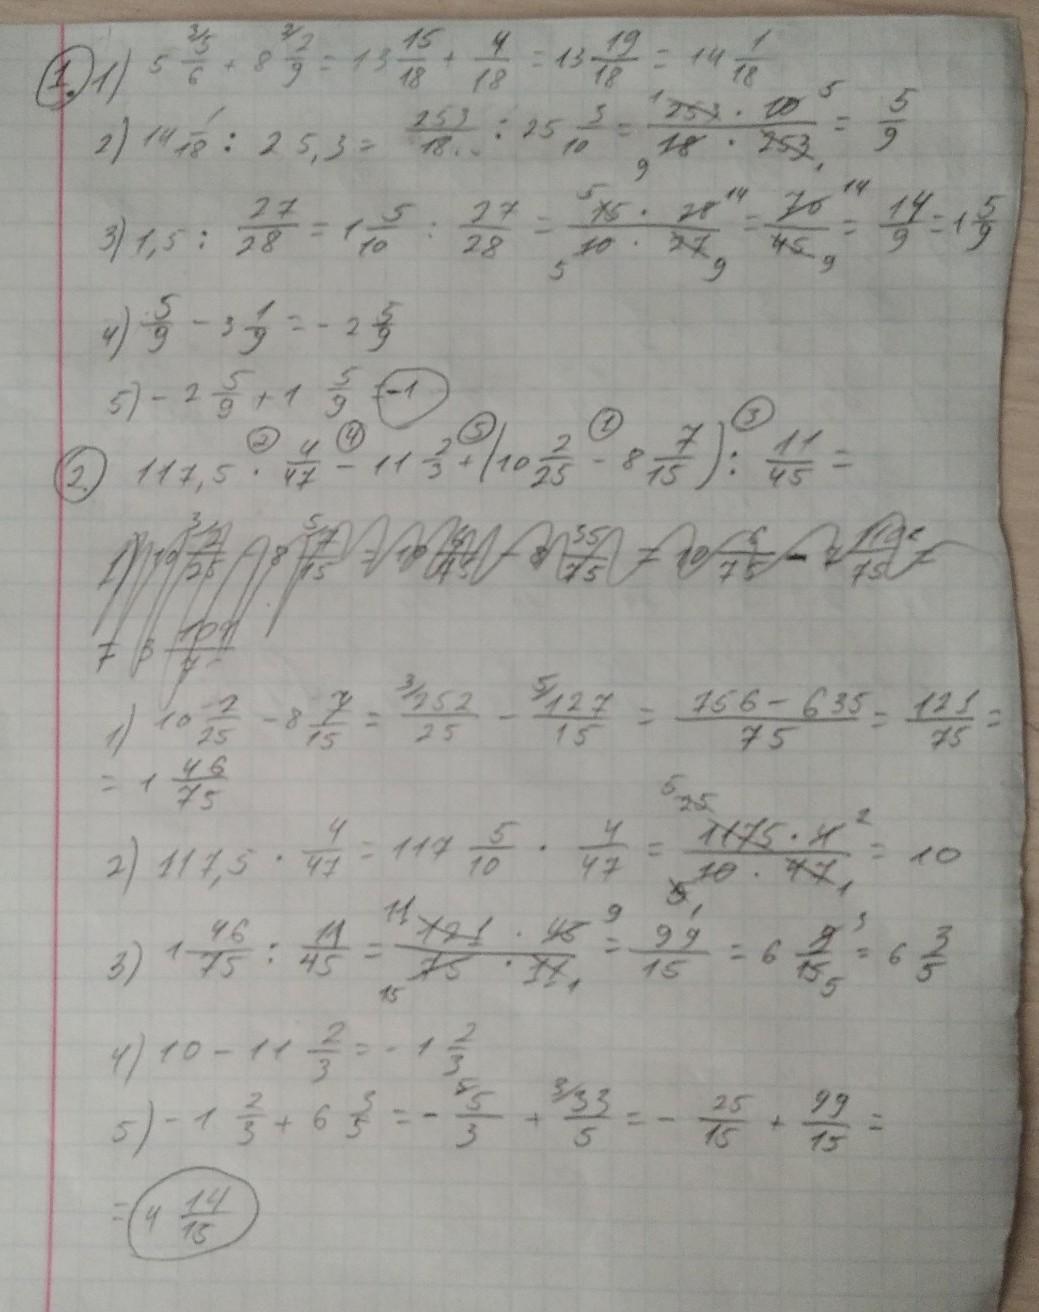 1. 1) 5 3/5/6 + 8 2/2/9 = 13 15/18 + 4/18 = 13 19/18 = 14 1/18
2) 14 1/18 : 25,3 = 253/18 : 25 3/10 = 253 · 10/18 · 253 = 5/9
3) 1,5 : 27/28 = 1 5/10 : 27/28 = 15 · 28/10 · 27 = 70/45 = 14/9 = 1 5/9
4) 5/9 - 3 1/9 = - 2 5/9
5) - 2 5/9 + 1 5/9 = -1
2. 117,5 · 4/47 - 11 2/3 + (10 2/25 - 8 7/15) : 11/45 =
1) 10 2/25 - 8 7/15 = 3/252/25 - 5/127/15 = 756 - 635/75 = 121/75 =
= 1 46/75
2) 117,5 · 4/47 = 117 5/10 · 4/47 = 1175 · 4/10 · 47 = 10
3) 1 46/75 : 11/45 = 121 · 45/75 · 11 = 99/15 = 6 9/15 = 6 3/5
4) 10 - 11 2/3 = - 1 2/3
5) - 1 2/3 + 6 3/5 = - 5/3 + 3/33/5 = - 25/15 + 99/15 =
= 4 14/15